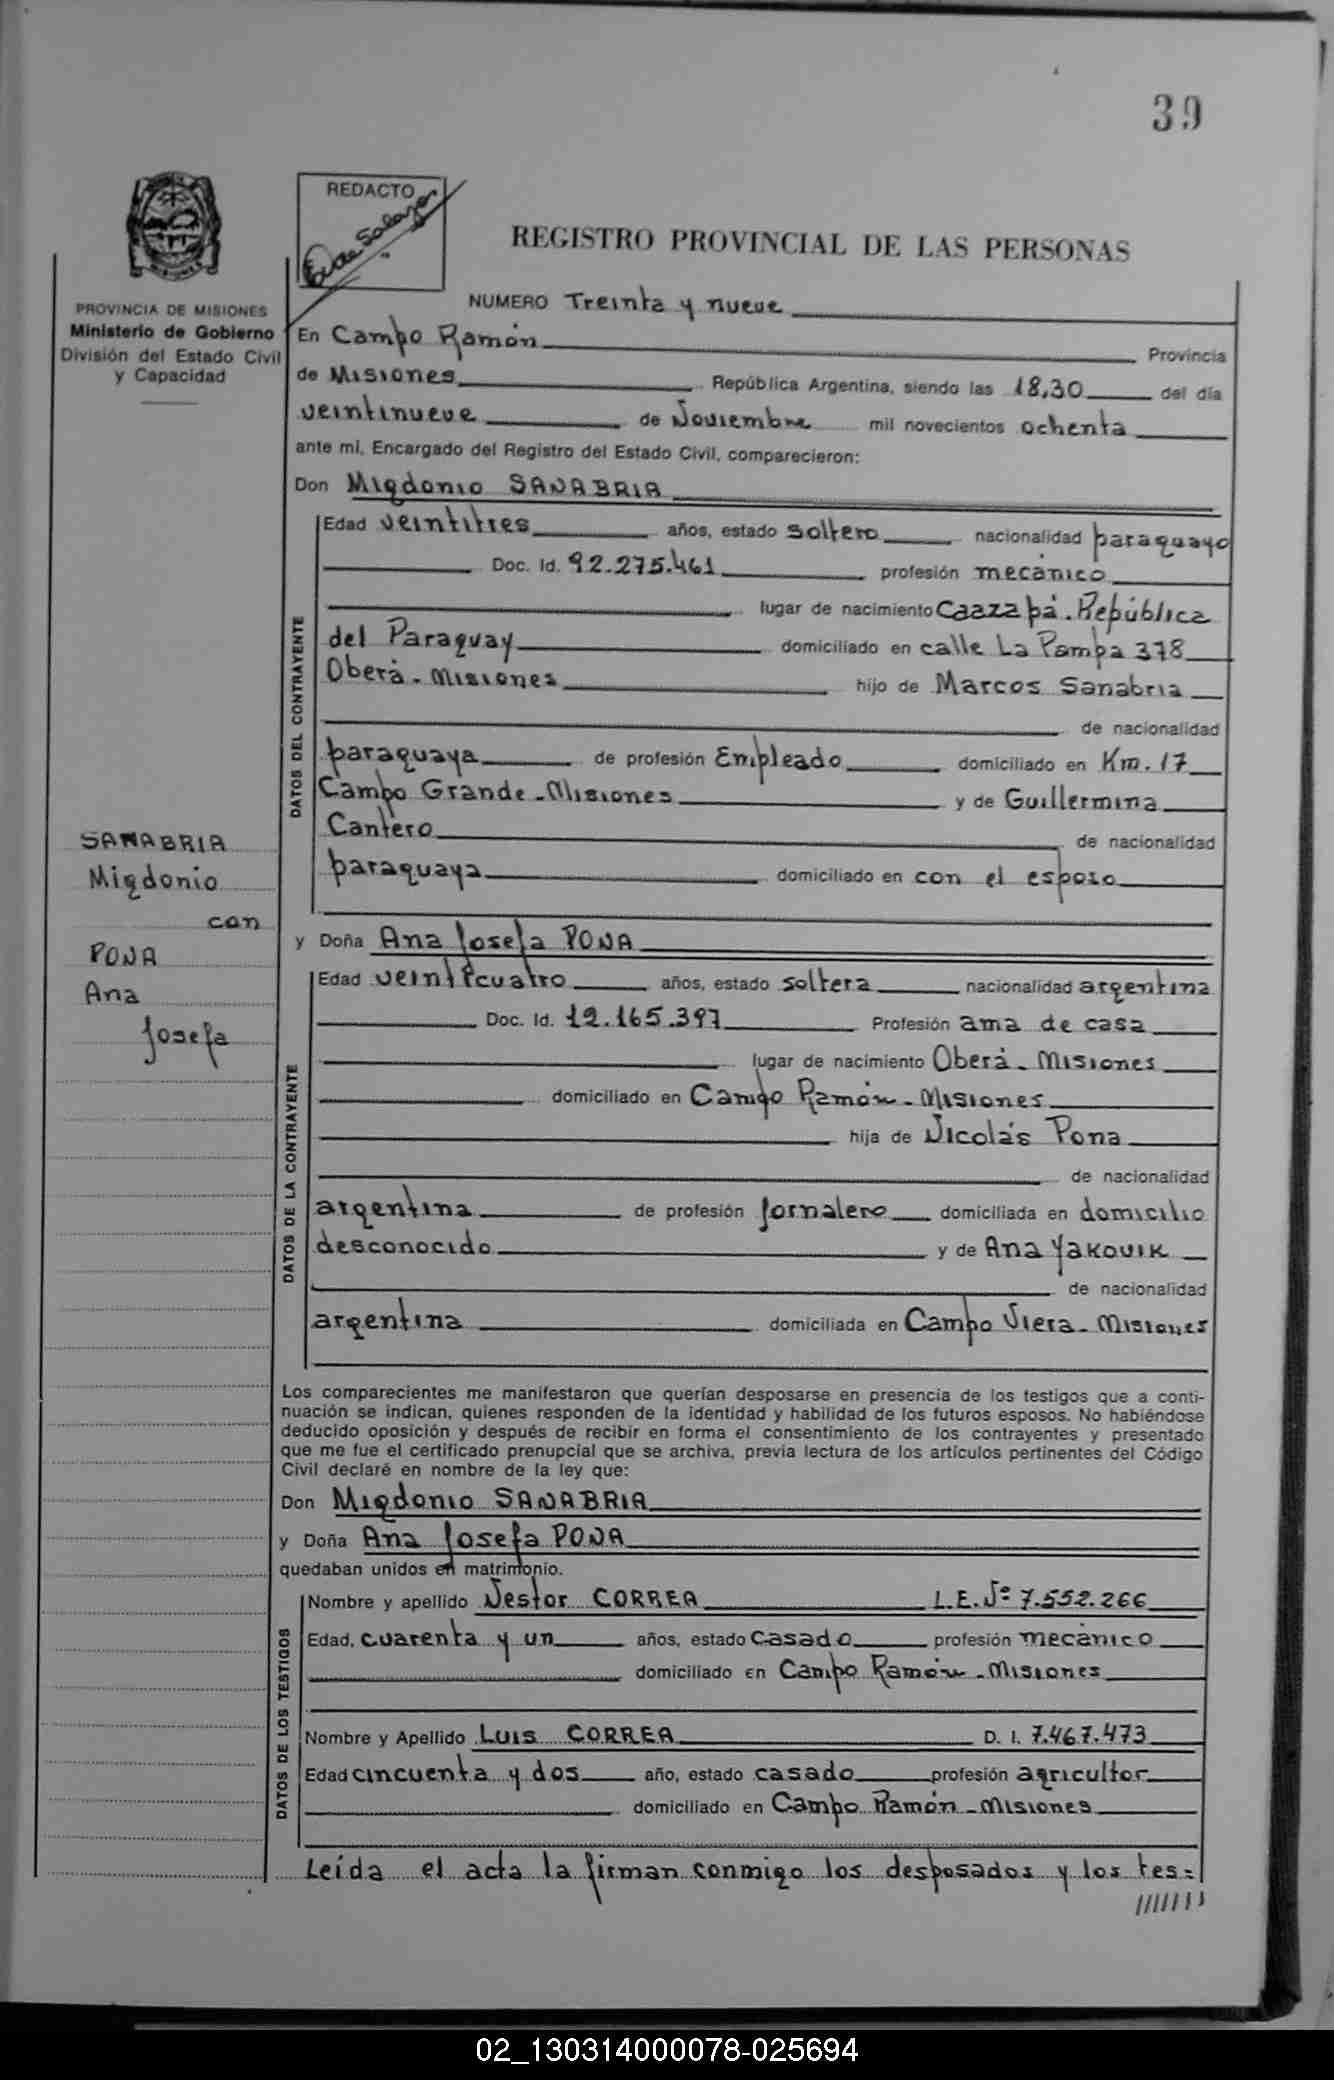 39
REDACTO
E. de Salazar
REGISTRO PROVINCIAL DE LAS PERSONAS
PROVINCIA DE MISIONES
Ministerio de Gobierno
División del Estado Civil
y Capacidad
NUMERO Treinta y nueve
En Campo Ramón Provincia
de Misiones República Argentina, siendo las 18,30 del día
veintinueve de Noviembre mil novecientos ochenta
ante mí, Encargado del Registro del Estado Civil, comparecieron:
Don Migdonio SANABRIA
DATOS DEL CONTRAYENTE
Edad veintitres años, estado soltero nacionalidad paraguayo
Doc. Id. 92.275.461 profesión mecánico
lugar de nacimiento Caazapá. República
del Paraguay domiciliado en calle La Pampa 378
Oberá. Misiones hijo de Marcos Sanabria
de nacionalidad
paraguaya de profesión Empleado domiciliado en Km. 17
Campo Grande-Misiones y de Guillermina
Cantero de nacionalidad
paraguaya domiciliado en con el esposo
SANABRIA
Migdonio
con
PONA
Ana
Josefa
y Doña Ana Josefa PONA
DATOS DE LA CONTRAYENTE
Edad veinticuatro años, estado soltera nacionalidad argentina
Doc. Id. 12.165.397 Profesión ama de casa
lugar de nacimiento Oberá- Misiones
domiciliado en Campo Ramón-Misiones
hija de Nicolás Pona
de nacionalidad
argentina de profesión Jornalero domiciliada en domicilio
desconocido y de Ana Yakovik
de nacionalidad
argentina domiciliada en Campo Viera-Misiones
Los comparecientes me manifestaron que querían desposarse en presencia de los testigos que a conti-
nuación se indican, quienes responden de la identidad y habilidad de los futuros esposos. No habiéndose
deducido oposición y después de recibir en forma el consentimiento de los contrayentes y presentado
que me fue el certificado prenupcial que se archiva, previa lectura de los artículos pertinentes del Código
Civil declaré en nombre de la ley que:
Don Migdonio SANABRIA
y Doña Ana Josefa PONA
quedaban unidos en matrimonio.
DATOS DE LOS TESTIGOS
Nombre y apellido Nestor CORREA L.E. Nº 7.552.266
Edad, cuarenta y un años, estado casado profesión mecánico
domiciliado en Campo Ramón-Misiones
Nombre y Apellido Luis CORREA D. I. 7.467.473
Edad cincuenta y dos año, estado casado profesión agricultor
domiciliado en Campo Ramón-Misiones
Leída el acta la firman conmigo los desposados y los tes=
///////
02_130314000078-025694